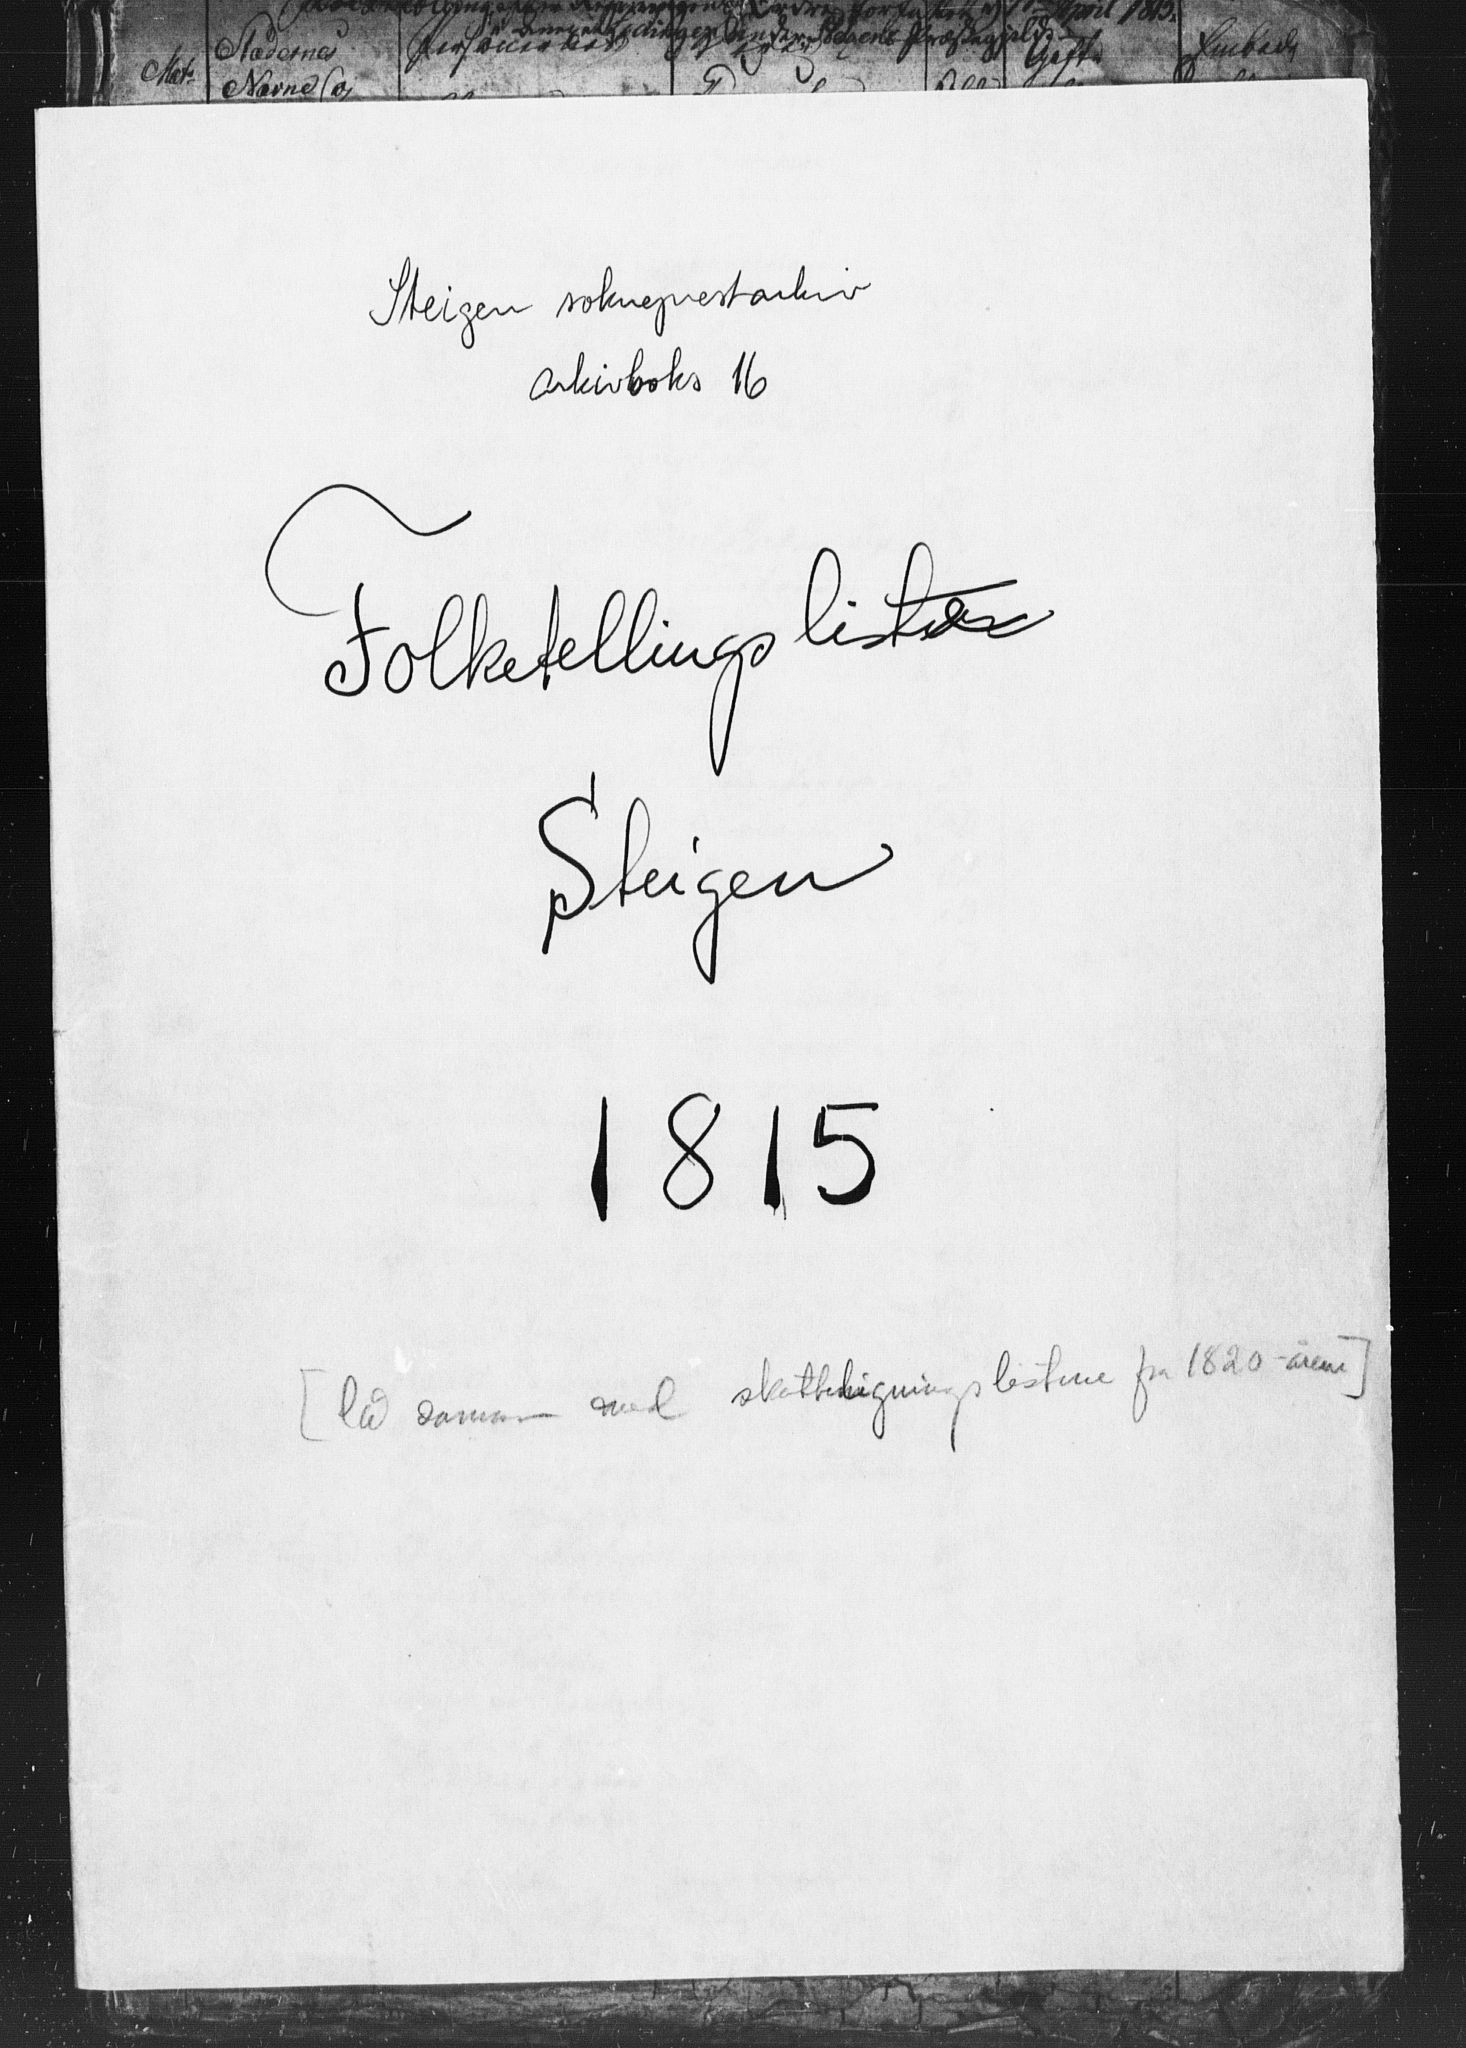 April 1815.
Mat:
Stædernes
Navne
Gift
Steigen sokneprestarkiv
arkivboks 16
Folketellingslister
Steigen
1815
[lå sammen med skattelignings listene fra 1820-årene]